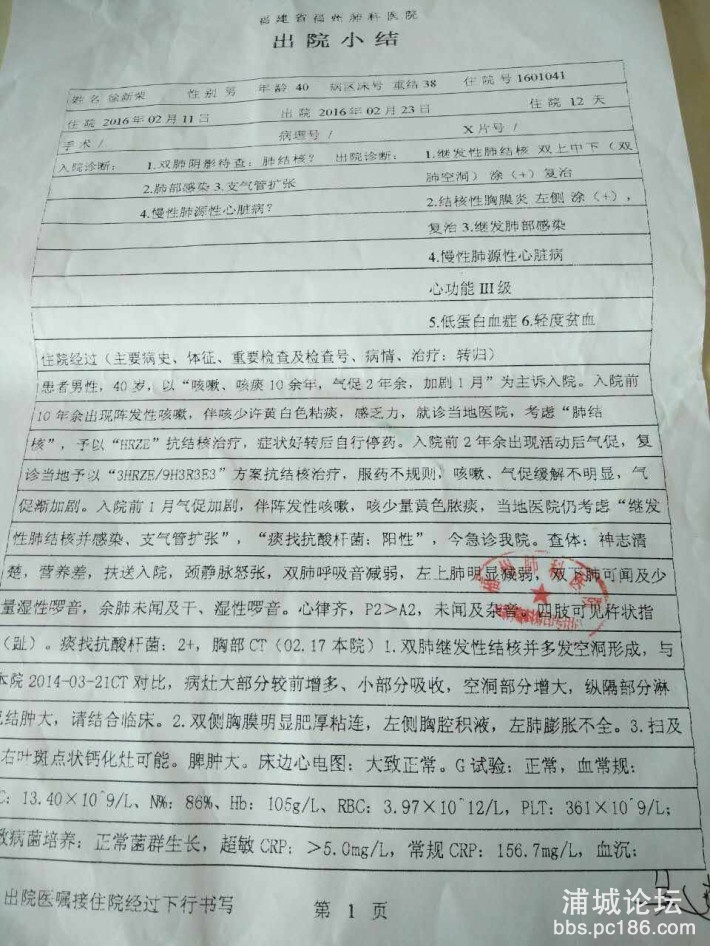 福建省福州肺科医院
出院小结
姓名 徐新荣 性别 男 年龄 40 病区床号 重结38 住院号 1601041
住院 2016年02月11日 出院 2016年02月23日 住院 12 天
手术 / 病理号 / X片号 /
入院诊断： 1.双肺阴影待查：肺结核？ 出院诊断： 1.继发性肺结核 双上中下（双
2.肺部感染 3.支气管扩张 肺空洞）涂（+）复治
4.慢性肺源性心脏病？ 2.结核性胸膜炎 左侧 涂（+），
复治 3.继发肺部感染
4.慢性肺源性心脏病
心功能 III 级
5.低蛋白血症 6.轻度贫血
住院经过（主要病史、体征、重要检查及检查号、病情、治疗：转归）
患者男性，40岁，以“咳嗽、咳痰10余年，气促2年余，加剧1月”为主诉入院。入院前
10年余出现阵发性咳嗽，伴咳少许黄白色粘痰，感乏力，就诊当地医院，考虑“肺结
核”，予以“HRZE”抗结核治疗，症状好转后自行停药。入院前2年余出现活动后气促，复
诊当地予以“3HRZE/9H3R3E3”方案抗结核治疗，服药不规则，咳嗽、气促缓解不明显，气
促渐加剧。入院前1月气促加剧，伴阵发性咳嗽，咳少量黄色脓痰，当地医院仍考虑“继发
性肺结核并感染、支气管扩张”，“痰找抗酸杆菌：阳性”，今急诊我院。查体：神志清
楚，营养差，扶送入院，颈静脉怒张，双肺呼吸音减弱，左上肺明显减弱，双上肺可闻及少
量湿性啰音，余肺未闻及干、湿性啰音。心律齐，P2＞A2，未闻及杂音。四肢可见杵状指
（趾）。痰找抗酸杆菌：2+，胸部CT（02.17本院）1.双肺继发性结核并多发空洞形成，与
本院2014-03-21CT对比，病灶大部分较前增多、小部分吸收，空洞部分增大，纵隔部分淋
巴结肿大，请结合临床。2.双侧胸膜明显肥厚粘连，左侧胸腔积液，左肺膨胀不全。3.扫及
右叶斑点状钙化灶可能。脾肿大。床边心电图：大致正常。G试验：正常，血常规：
C：13.40×10^9/L，N%：86%，Hb：105g/L，RBC：3.97×10^12/L，PLT：361×10^9/L；
致病菌培养：正常菌群生长，超敏CRP：＞5.0mg/L，常规CRP：156.7mg/L，血沉：
出院医嘱接住院经过下行书写 第 1 页
浦城论坛
bbs.pc186.com